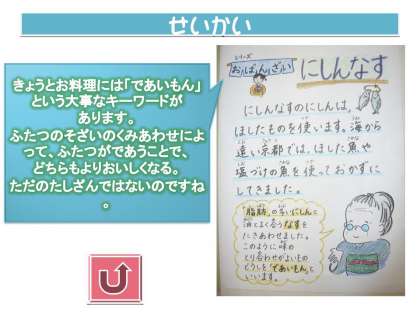 せいかい
きょうとお料理には「であいもん」
という大事なキーワードが
あります。
ふたつのそざいのくみあわせによ
って、ふたつがであうことで、
どちらもよりおいしくなる。
ただのたしざんではないのですね
。
シリーズ
おばんざい
にしんなす
にしんなすのにしんは、
ほしたものを使います。海から
遠い京都では、ほした魚や
塩づけの魚を使っておかずに
してきました。
"脂肪"の多いにしんと
油とよく合うなすを
たきあわせました。
このように味の
とり合わせがよいもの
どうしを「であいもん」と
いいます。